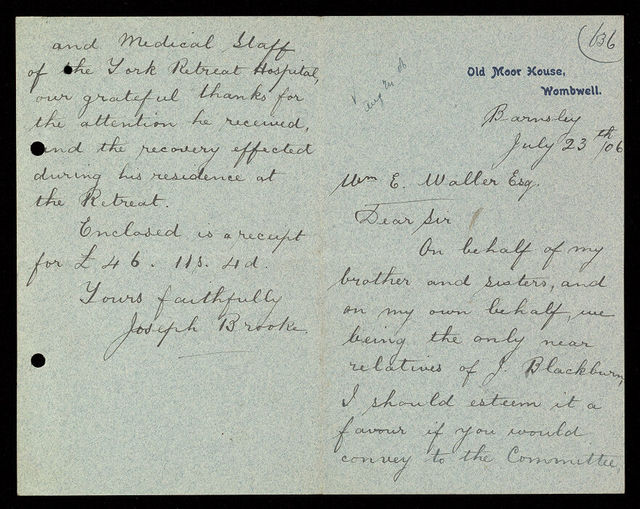 136
Old Moor House,
Wombwell.
Barnsley
July 23th/06
Wm E. Waller Esq.
Dear Sir
On behalf of my
brother and sisters, and
on my own behalf, we
being the only near
relatives of J. Blackburn,
I should esteem it a
favour if you would
convey to the Committee,
and Medical Staff
of the York Retreat Hospital,
our grateful thanks for
the attention he received,
and the recovery effected
during his residence at
the Retreat.
Enclosed is a receipt
for £46. 11s. 4d.
Yours faithfully
Joseph Brooke.